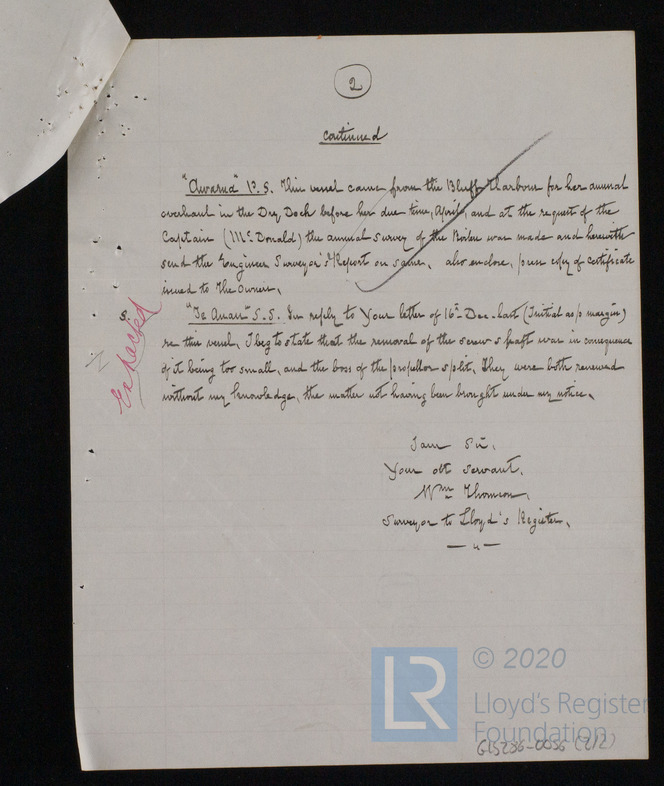 2
Continued
"Awarua" P.S. This vessel came from the Bluff Harbour for her annual
overhaul in the Dry Dock before her due time, April, and at the request of the
Captain (McDonald) the annual survey of the Boiler was made and herewith
send the Engineer Surveyor's Report on same, also enclose, press copy of Certificate
issued to the Owners.
S. "Te Anau" S.S. In reply to Your letter of 16th Dec. last (Initial as p margin)
re this vessel, I beg to state that the removal of the screw shaft was in consequence
of it being too small, and the boss of the propellor split, They were both renewed
without my knowledge, the matter not having been brought under my notice.
Extracted
I am Sir,
Your obt servant,
Wm Thomson,
Surveyor to Lloyd's Register.
— " —
LR © 2020
Lloyd's Register
Foundation
(2/2)